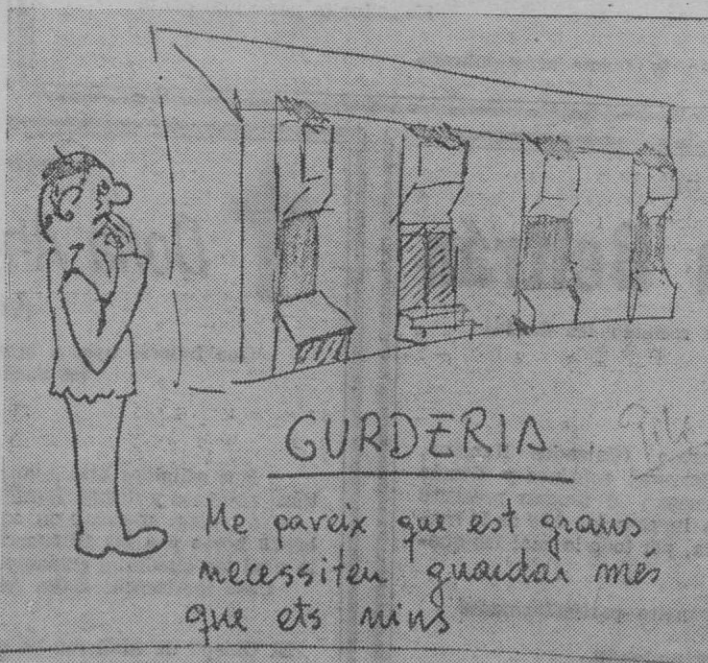 GURDERIA
Me pareix que est grans
necessiten guardar més
que ets nins